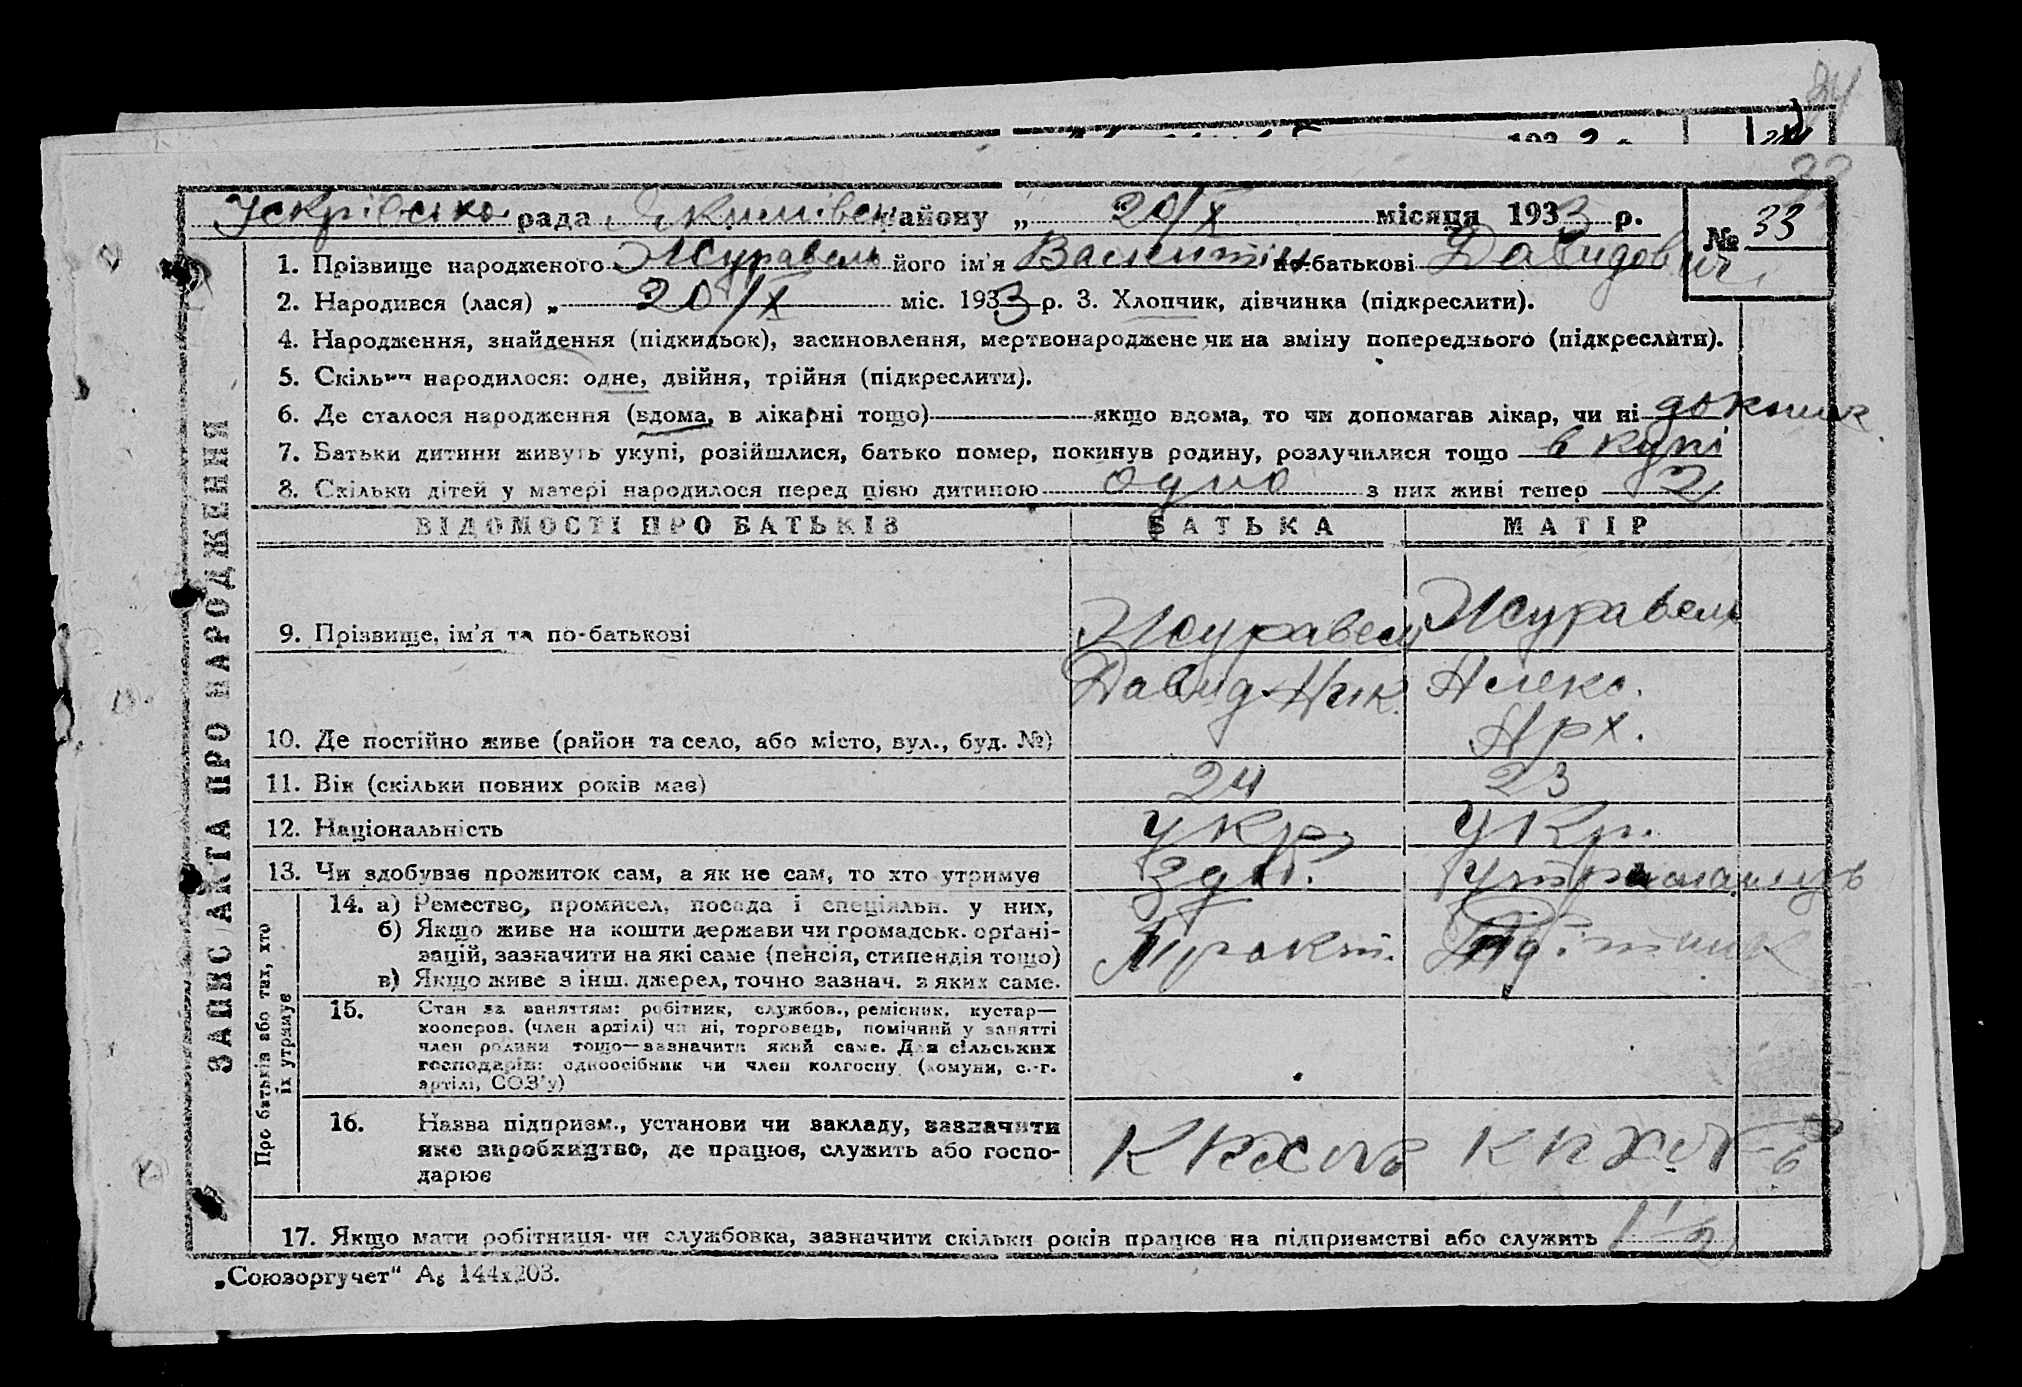 84
193 р.
33
Іскрівська рада Якимівськ району „ 20/X місяця 1933 р.
№ 33
1. Прізвище народженого Журавель його ім'я Валентін по-батькові Давидович
2. Народився (лася) „ 20/X міс. 1933 р. 3. Хлопчик, дівчинка (підкреслити).
4. Народження, знайдення (підкидьок), засиновлення, мертвонароджене чи на зміну попереднього (підкреслити).
5. Скільки народилося: одне, двійня, трійня (підкреслити).
6. Де сталося народження (вдома, в лікарні тощо) якщо вдома, то чи допомагав лікар, чи ні
7. Батьки дитини живуть укупі, розійшлися, батько помер, покинув родину, розлучилися тощо в купі
8. Скільки дітей у матері народилося перед цією дитиною одно з них живі тепер 2
ВІДОМОСТІ ПРО БАТЬКІВ БАТЬКА МАТІР
9. Прізвище, ім'я та по-батькові Журавель Журавель
Давид Ник. Алекс.
Арх.
10. Де постійно живе (район та село, або місто, вул., буд. №)
11. Вік (скільки повних років має) 24 23
12. Національність Укр. Укр.
13. Чи здобуває прожиток сам, а як не сам, то хто утримує Здоб.
14. а) Ремество, промисел, посада і спеціяльн. у них,
б) Якщо живе на кошти держави чи громадськ. органі-
зацій, зазначити на які саме (пенсія, стипендія тощо)
в) Якщо живе з інш. джерел, точно зазнач. з яких саме.
Тракт.
15. Стан за заняттям: робітник, службов., ремісник, кустар—
кооперов. (член артілі) чи ні, торговець, помічний у занятті
член родини тощо—зазначити який саме. Для сільських
господарів: одноосібник чи член колгоспу (комуни, с.-г.
артілі, СОЗ'у)
16. Назва підприєм., установи чи закладу, зазначити
яке виробництво, де працює, служить або госпо-
дарює
17. Якщо мати робітниця чи службовка, зазначити скільки років працює на підприємстві або служить
„Союзоргучет“ А₆ 144x203.
ЗАПИС АКТА ПРО НАРОДЖЕННЯ
Про батьків або тих, хто
їх утримує